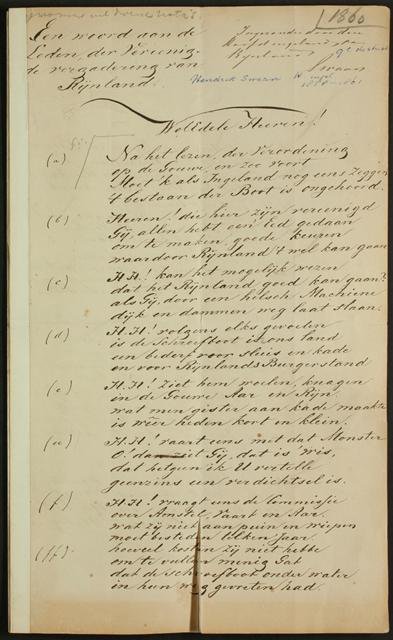 1860
Een woord aan de
Leden, der Vereenig-
de vergadering van
Rijnland.
Hendrik Swaan
Swaan
WelEdele Heeren!
(a) Na het lezen, der Verordening
op de Gouwe, en zoo voort
Moet 'k als Ingeland nog eens zeggen
't bestaan der Boot is ongehoord.
(b) Heeren! die hier zijn vereenigd
Gij, allen hebt een Eed gedaan
om te maken goede keuren
waardoor Rijnland 't wel kan gaan
(c) H.H.! kan het mogelijk wezen
dat het Rijnland, goed kan gaan?
als Gij, door een helsch Machiene
dijk en dammen weg laat slaan.
(d) H.H.! volgens elks gevoelen
is de Schroefboot in ons land
een bederf voor Sluis en kade
en voor Rijnlands Burgerstand
(e) H.H.! Ziet hem woelen, knagen
in de Gouwe Aar en Rijn
wat men gister aan kade maakte
is weer heden kort en klein.
(ee) H.H.! vaart eens met dat Monster
O! dan ziet Gij, dat is wis,
dat hetgeen ik U vertelle
geenzins een verdichtsel is.
(f) H.H.! vraagt eens de Commissie
over Amstel, Vaart en Aar,
wat zij niet aan puin en wiepen
moet besteden elken jaar.
(ff) hoeveel kosten zij niet hebbe
om te vullen menig Gat
dat de schroefboot onder water
in hun weg gevreten had.